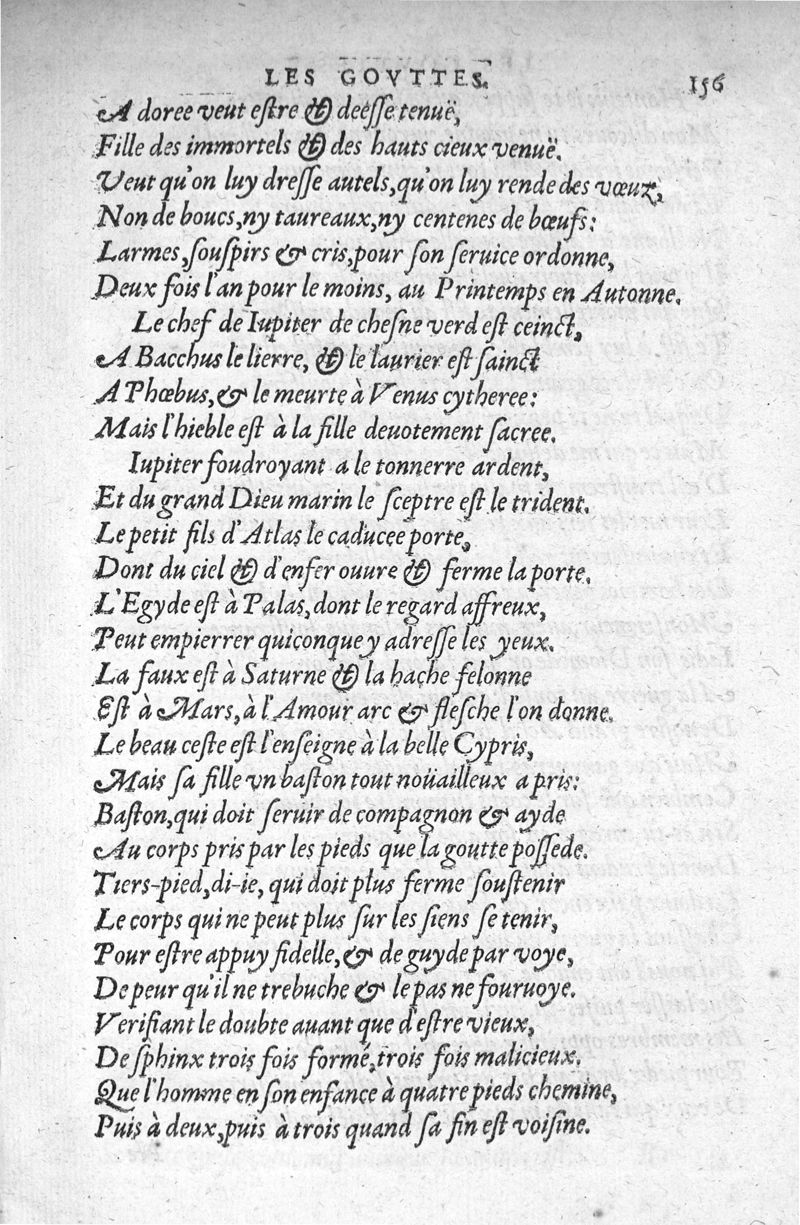 LES GOVTTES. 156
Adoree veut estre & deésse tenuë,
Fille des immortels & des hauts cieux venuë.
Veut qu'on luy dresse autels, qu'on luy rende des vœuz,
Non de boucs, ny taureaux, ny centenes de bœufs:
Larmes, souspirs & cris, pour son seruice ordonne,
Deux fois l'an pour le moins, au Printemps en Autonne.
Le chef de Iupiter de chesne verd est ceinct,
A Bacchus le lierre, & le laurier est sainct
A Phœbus, & le meurte à Venus cytheree:
Mais l'hieble est à la fille deuotement sacree.
Iupiter foudroyant a le tonnerre ardent,
Et du grand Dieu marin le sceptre est le trident.
Le petit fils d'Atlas le caducee porte,
Dont du ciel & d'enfer ouure & ferme la porte.
L'Egyde est à Palas, dont le regard affreux,
Peut empierrer quiconque y adresse les yeux.
La faux est à Saturne & la hache felonne
Est à Mars, à l'Amour arc & flesche l'on donne.
Le beau ceste est l'enseigne à la belle Cypris,
Mais sa fille vn baston tout noüailleux a pris:
Baston, qui doit seruir de compagnon & ayde
Au corps pris par les pieds que la goutte possede.
Tiers-pied, di-ie, qui doit plus ferme soustenir
Le corps qui ne peut plus sur les siens se tenir,
Pour estre appuy fidelle, & de guyde par voye,
De peur qu'il ne trebuche & le pas ne fouruoye.
Verifiant le doubte auant que d'estre vieux,
De sphinx trois fois formé, trois fois malicieux,
Que l'homme en son enfance à quatre pieds chemine,
Puis à deux, puis à trois quand sa fin est voisine.